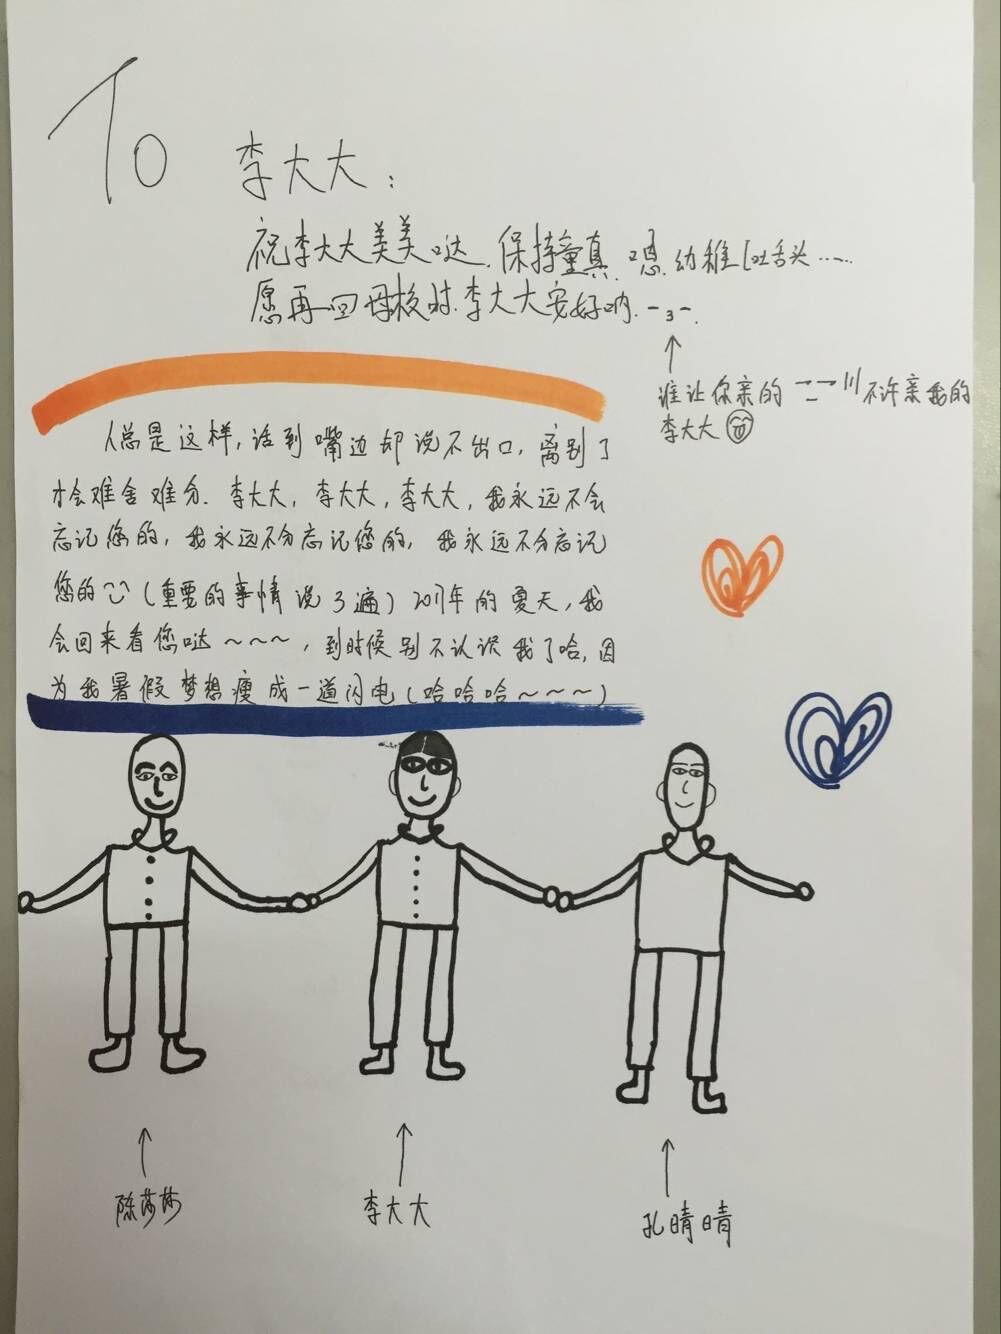 To
李大大：
祝李大大美美哒.保持童真.嗯.幼稚[吐舌头……
愿再回母校时.李大大安好哟.-3-.
谁让你亲的 不许亲我的
李大大
人总是这样，话到嘴边却说不出口，离别了
才会难舍难分.李大大，李大大，李大大，我永远不会
忘记您的，我永远不会忘记您的，我永远不会忘记
您的(重要的事情说3遍)2017年的夏天，我
会回来看您哒~~~，到时候别不认识我了哈，因
为我暑假梦想瘦成一道闪电(哈哈哈~~~)
陈莎莎
李大大
孔晴晴